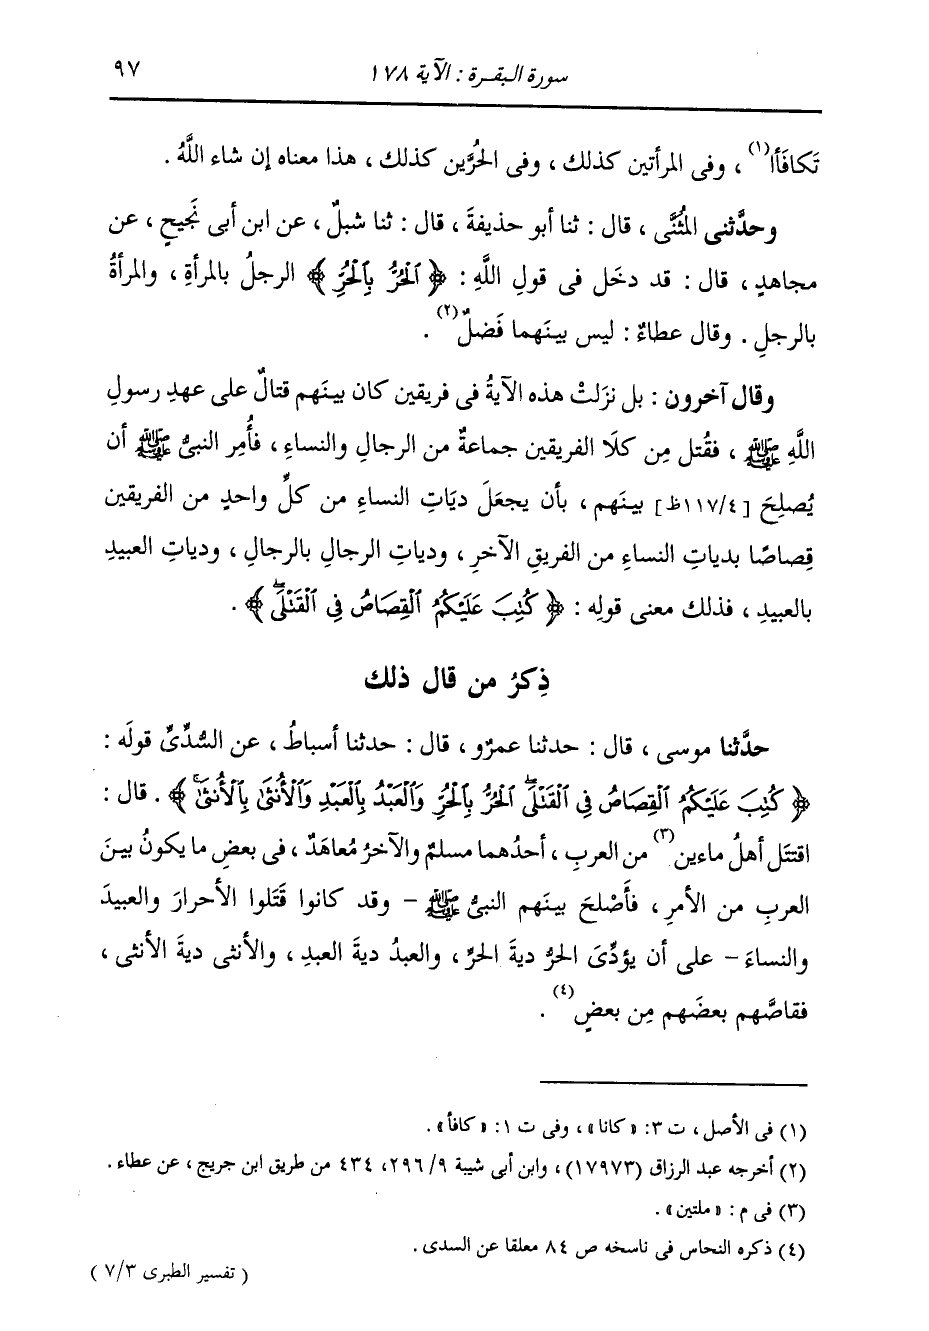 سورة البقرة : الآية ١٧٨
٩٧
تَكافَأَا(١) ، وفى المرأتين كذلك ، وفى الحُرَّين كذلك ، هذا معناه إن شاء اللَّهُ .
وحدَّثنى المُثَنَّى ، قال : ثنا أبو حذيفةَ ، قال : ثنا شبلٌ ، عن ابن أبى نَجيحٍ ، عن
مجاهدٍ ، قال : قد دخَل فى قولِ اللَّهِ : ﴿ ٱلْحُرُّ بِٱلْحُرِّ ﴾ الرجلُ بالمرأةِ ، والمرأةُ
بالرجلِ . وقال عطاءٌ : ليس بينَهما فَضلٌ(٢) .
وقال آخرون : بل نزَلتْ هذه الآيةُ فى فريقين كان بينَهم قتالٌ على عهدِ رسولِ
اللَّهِ ﷺ ، فقُتل مِن كلَا الفريقين جماعةٌ من الرجالِ والنساءِ ، فأُمِر النبىُّ ﷺ أن
يُصلِحَ [٤/١١٧ظ] بينَهم ، بأن يجعَلَ ديَاتِ النساءِ من كلِّ واحدٍ من الفريقين
قِصاصًا بدياتِ النساءِ من الفريقِ الآخرِ ، ودياتِ الرجالِ بالرجالِ ، ودياتِ العبيدِ
بالعبيدِ ، فذلك معنى قولِه : ﴿ كُتِبَ عَلَيْكُمُ ٱلْقِصَاصُ فِى ٱلْقَتْلَىۖ ﴾ .
ذِكرُ من قال ذلك
حدَّثنا موسى ، قال : حدثنا عمرٌو ، قال : حدثنا أسباطُ ، عن السُّدِّىِّ قولَه :
﴿ كُتِبَ عَلَيْكُمُ ٱلْقِصَاصُ فِى ٱلْقَتْلَىۖ ٱلْحُرُّ بِٱلْحُرِّ وَٱلْعَبْدُ بِٱلْعَبْدِ وَٱلْأُنثَىٰ بِٱلْأُنثَىٰۚ ﴾ . قال :
اقتتَل أهلُ ماءين(٣) من العربِ ، أحدُهما مسلمٌ والآخرُ مُعاهَدٌ ، فى بعضِ ما يكونُ بينَ
العربِ من الأمرِ ، فأَصْلحَ بينَهم النبىُّ ﷺ - وقد كانوا قَتَلوا الأحرارَ والعبيدَ
والنساءَ - على أن يؤدِّىَ الحرُّ ديةَ الحرِّ ، والعبدُ ديةَ العبدِ ، والأنثى ديةَ الأنثى ،
فقاصَّهم بعضَهم مِن بعضٍ(٤) .
(١) فى الأصل ، ت ٣: « كانا » ، وفى ت ١: « كافأ » .
(٢) أخرجه عبد الرزاق (١٧٩٧٣) ، وابن أبى شيبة ٩/ ٢٩٦، ٤٣٤ من طريق ابن جريج ، عن عطاء .
(٣) فى م : « ملتين » .
(٤) ذكره النحاس فى ناسخه ص ٨٤ معلقا عن السدى .
( تفسير الطبرى ٧/٣ )